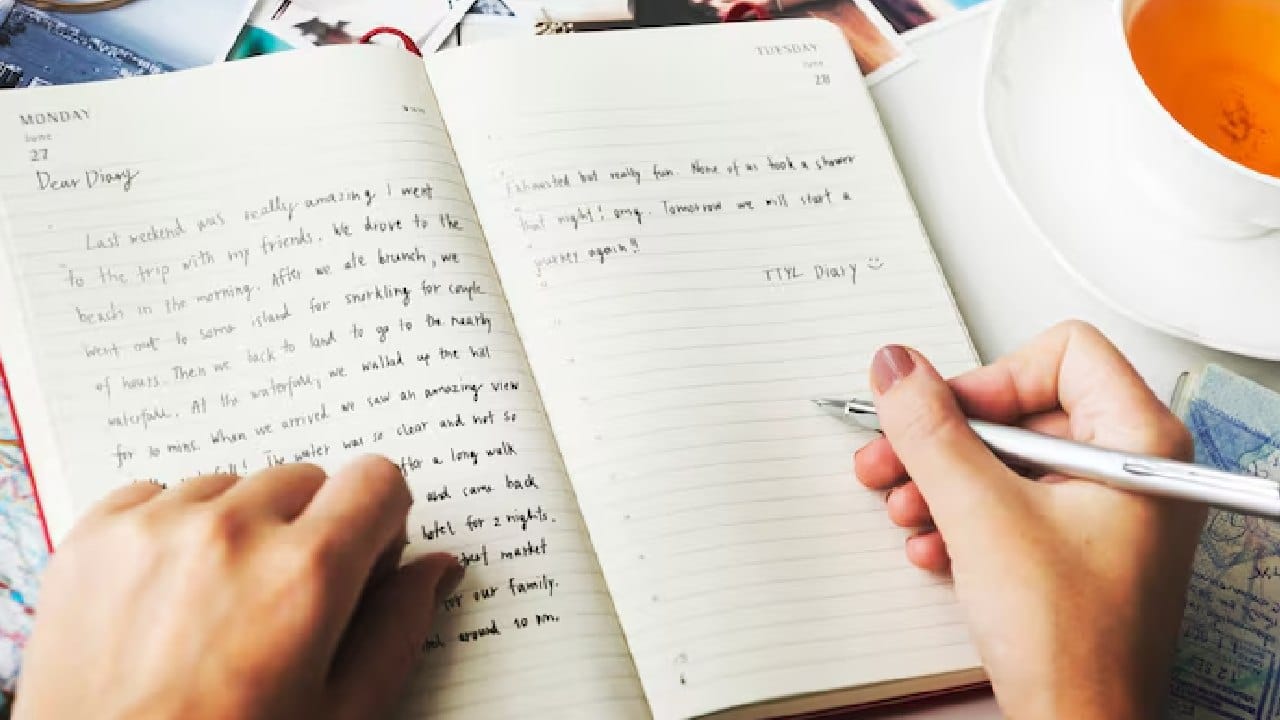 MONDAY
June
27
Dear Diary
Last weekend was really amazing I went
to the trip with my friends. We drove to the
beach in the morning. After we ate brunch, we
went out to some island for snorkling for couple
of hours. Then we back to land to go to the nearby
waterfall. At the waterfall, we walked up the hill
for 30 mins. When we arrived we saw an amazing view
The water was so clear and not so
after a long walk
and came back
hotel for 2 nights.
market
for our family.
around 10 pm.
TUESDAY
June
28
Exhausted but really fun. None of us took a shower
that night! omg. Tomorrow we will start a
journey again!!
TTYL Diary